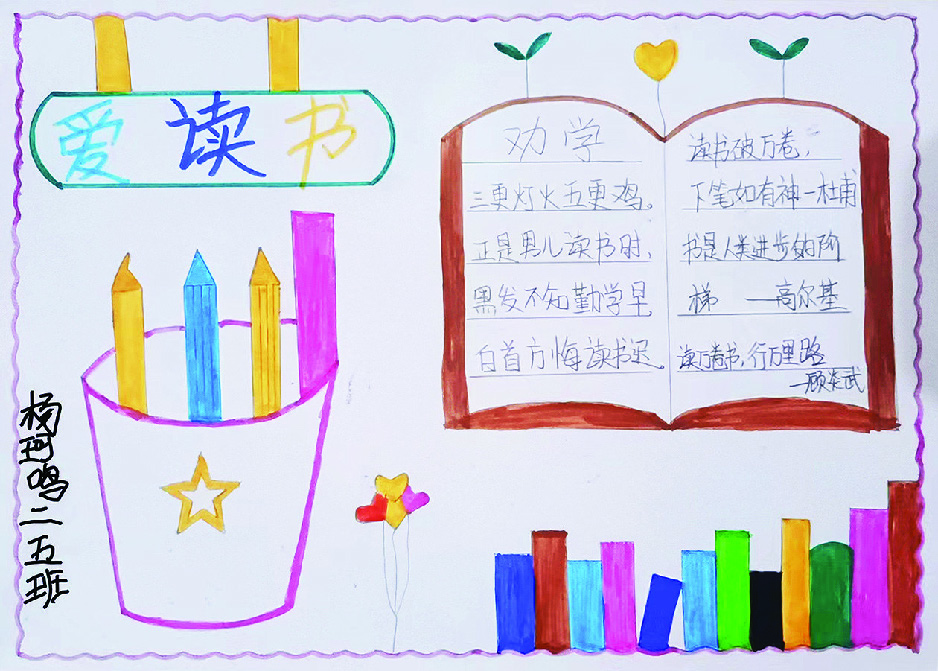 爱读书
劝学
三更灯火五更鸡。
正是男儿读书时,
黑发不知勤学早
白首方悔读书迟。
读书破万卷,
下笔如有神一杜甫
书是人类进步的阶
梯 ——高尔基
读万卷书,行万里路
—顾炎武
杨珂鸣二五班